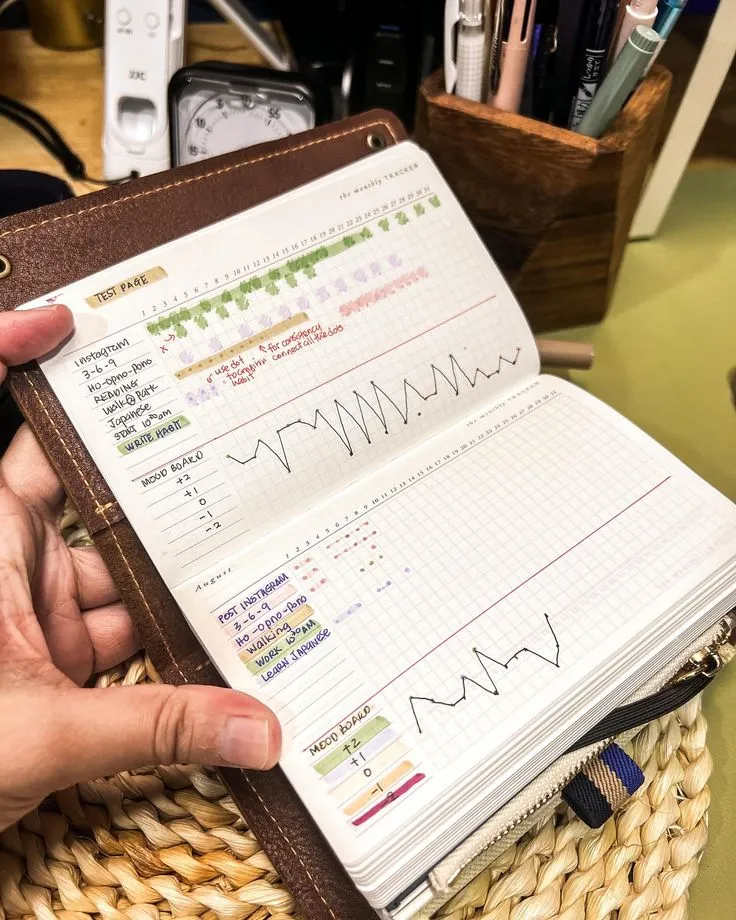 the monthly TRACKER
1 2 3 4 5 6 7 8 9 10 11 12 13 14 15 16 17 18 19 20 21 22 23 24 25 26 27 28 29 30 31
TEST PAGE
Instagram
3-6-9
Ho-opno-pono
READING
Walk@Park
Japanese
START 10:30 am
WRITE HABIT
x →
use dot
to confirm
habit
for consistency
connect all the dots
MOOD BOARD
+2
+1
0
-1
-2
the monthly TRACKER
1 2 3 4 5 6 7 8 9 10 11 12 13 14 15 16 17 18 19 20 21 22 23 24 25 26 27 28 29 30 31
August
POST INSTAGRAM
3-6-9
Ho-opno-pono
Walking
WORK 10:30 AM
LEARN JAPANESE
MOOD BOARD
+2
+1
0
-1
-2